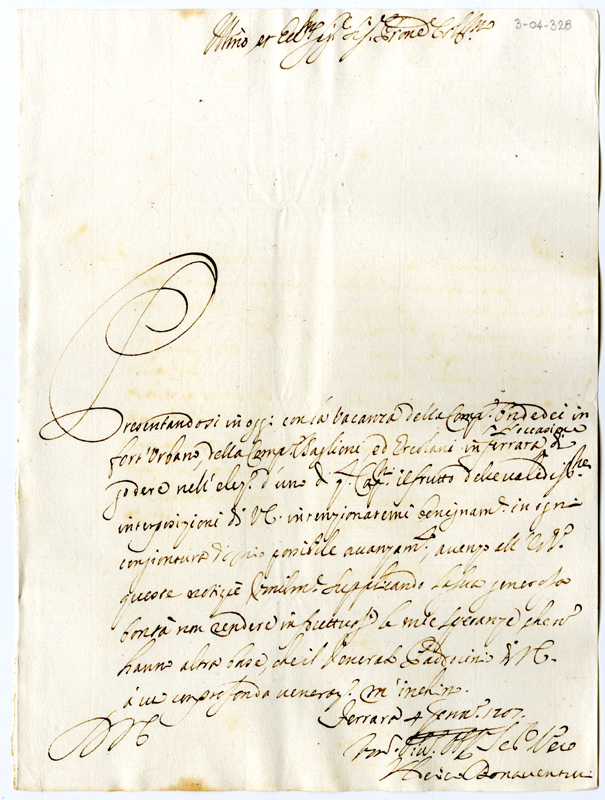 3-04-328
Illmo et Ecc.mo Sig.r Sig.r Prone Col.mo
Presentandosi in oggi con la Vacanza della Comp.a Ondedei in
l'occasione
fort'Urbano, della Comp.a Baglioni ed Ercolani in ferrara di
godere nell' elez.e d'uno di q.ti Cap.ni il frutto delle valide
interposizioni di VE. intenzionatemi benignam.te in ogni
congiontura di mio possibile avanzam.to, avanzo all' E.V.
queste notizie humilm.te supplicando la sua generosa
bontà non rendere infruttuose le mie speranze, che non
hanno altra base, che il Venerab. Padrocinio di VE.
à cui con profonda veneraz.e m'inchino.
Ferrara 4 Genn.o 1707.
D V E
Hum. Div. Obb. Se.re Vero
Bonaventura